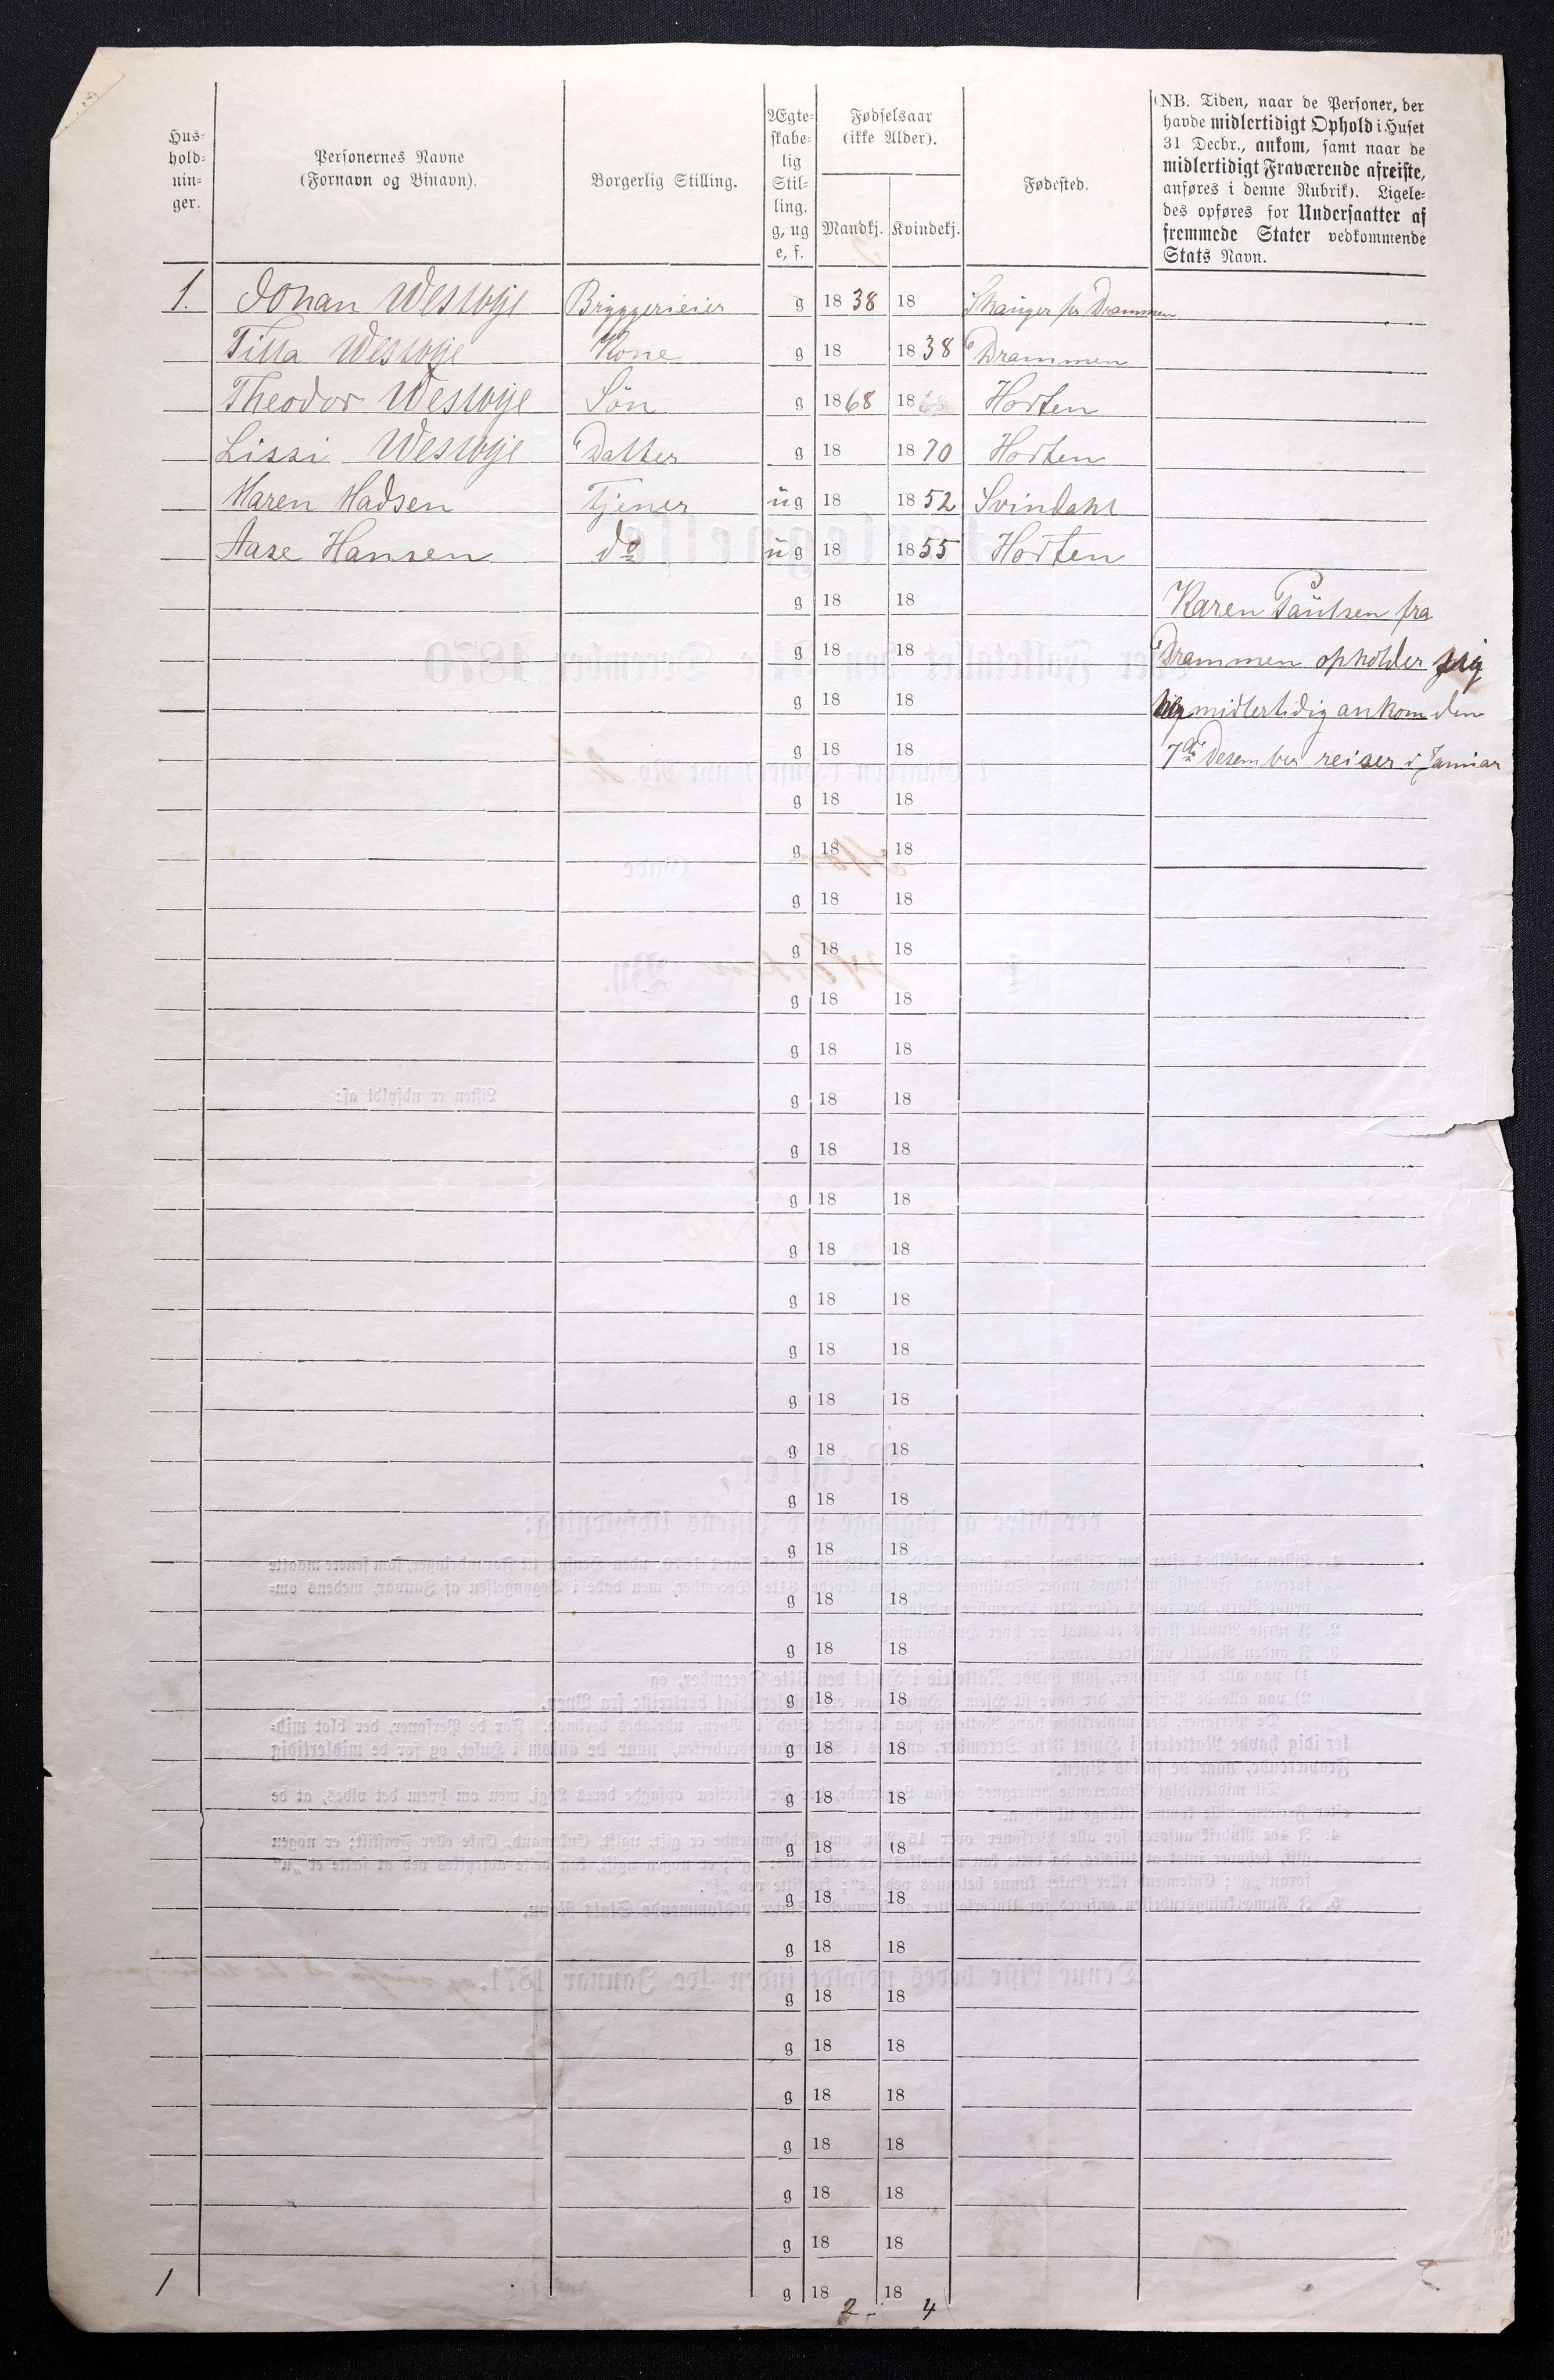 Hus-
hold-
nin-
ger.
Personernes Navne
(Fornavn og Binavn).
Borgerlig Stilling.
Ægte-
skabe-
lig
Stil-
ling.
g, ug
e, f.
Fødselsaar
(ikke Alder).
Mandkj. Kvindekj.
Fødested.
(NB. Tiden, naar de Personer, der
havde midlertidigt Ophold i Huset
31 Decbr., ankom, samt naar de
midlertidigt Fraværende afreiste,
anføres i denne Rubrik). Ligele-
des opføres for Undersaatter af
fremmede Stater vedkommende
Stats Navn.
1. Johan Weswije Bryggerieier g 18 38 18 Stranger pr Drammen
Tilla Weswije Kone g 18 18 38 Drammen
Theodor Weswije Søn g 18 68 18 Horten
Lissi Weswije Datter g 18 18 70 Horten
Maren Madsen Tjener ug 18 18 52 Svindahl
Aase Hansen do ug 18 18 55 Horten
g 18 18 Karen Paulsen fra
g 18 18 Drammen opholder sig
g 18 18 her midlertidig ankom den
g 18 18 7de Desember reiser i Januar
g 18 18
g 18 18
g 18 18
g 18 18
g 18 18
g 18 18
g 18 18
g 18 18
g 18 18
g 18 18
g 18 18
g 18 18
g 18 18
g 18 18
g 18 18
g 18 18
g 18 18
g 18 18
g 18 18
g 18 18
g 18 18
g 18 18
g 18 18
g 18 18
g 18 18
g 18 18
g 18 18
g 18 18
g 18 18
g 18 18
g 18 18
1 2 - 4